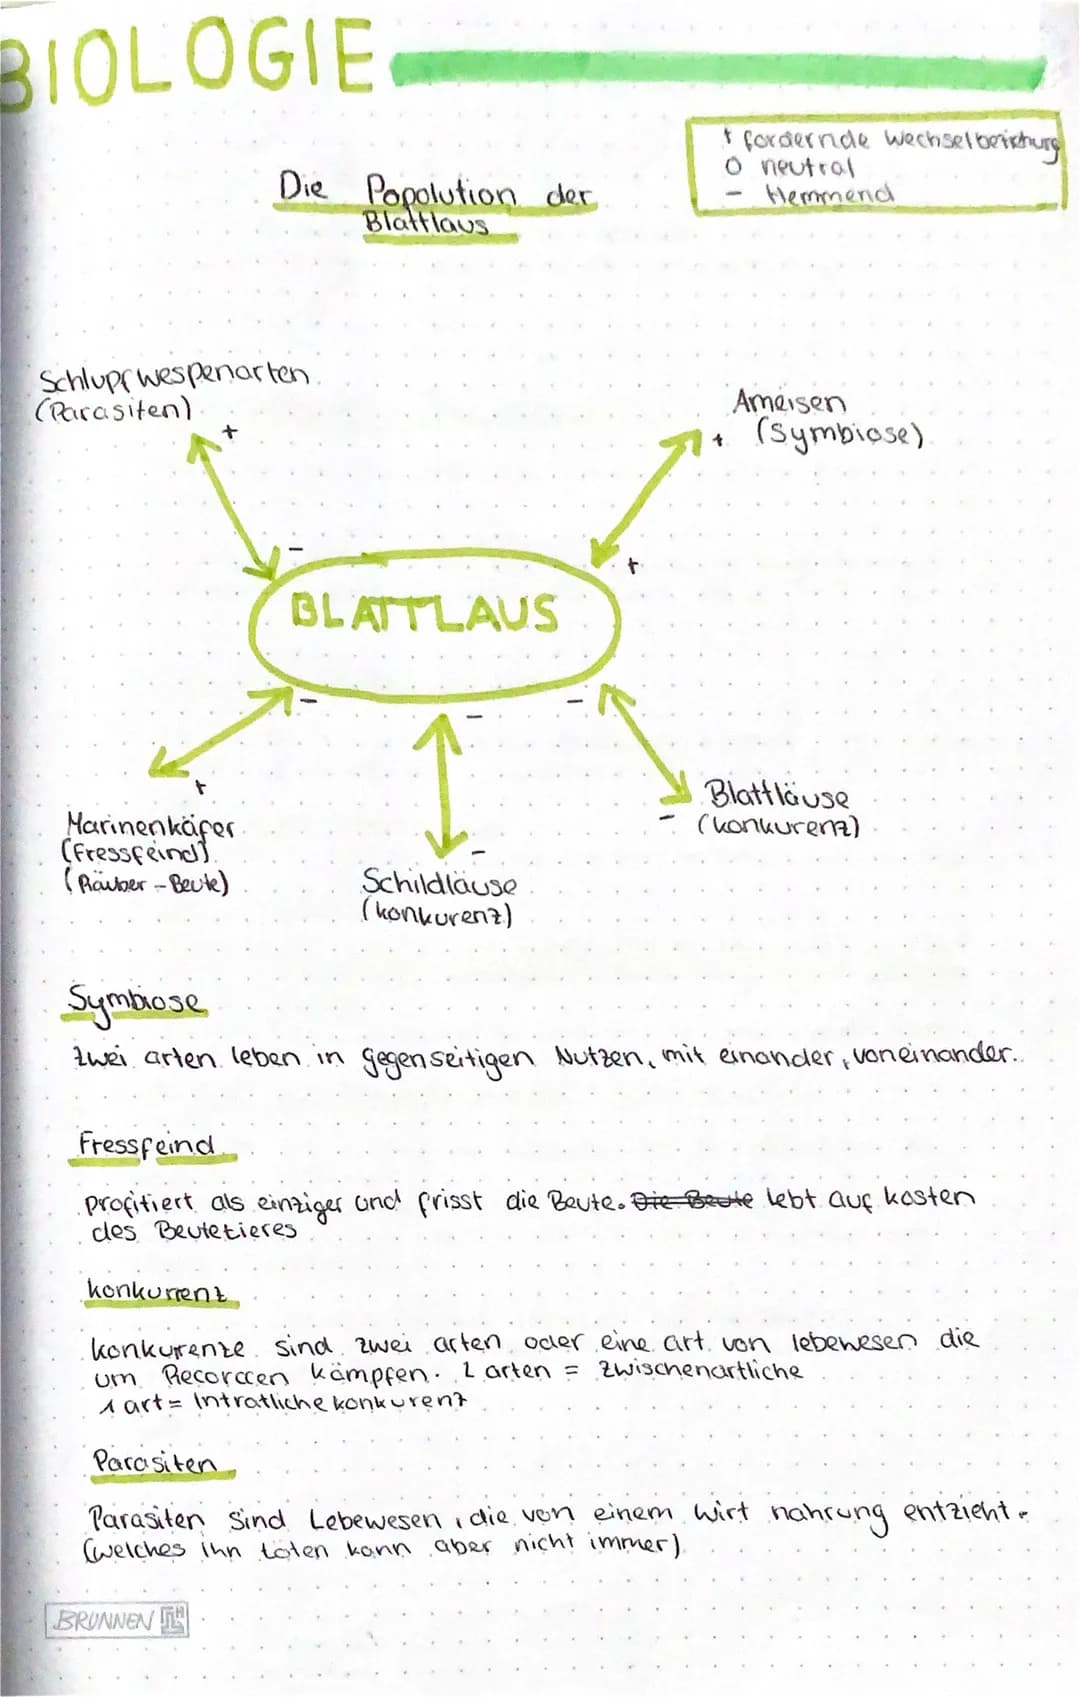 BIOLOGIE
+ fordernde Wechselbeziehung
O neutral
- Hemmend
Die Popolution der
Blattlaus
Schlupfwespenarten
(Parasiten)
+
Ameisen
+ (Symbiose)
-
+
BLATTLAUS
-
-
-
+
Marinenkäfer
(Fressfeind)
(Räuber - Beute)
-
Schildläuse
(konkurenz)
Blattläuse
- (konkurenz)
Symbiose
Zwei arten leben in gegenseitigen Nutzen, mit einander, voneinander.
Fressfeind
Profitiert als einziger und frisst die Beute. Die Beute lebt auf kosten
des Beutetieres
konkurrenz
konkurenze sind zwei arten oder eine art von lebewesen die
um Recorccen kämpfen. 2 arten = Zwischenartliche
1 art = Intratliche konkurenz
Parasiten
Parasiten sind Lebewesen, die von einem Wirt nahrung entzieht.
(welches ihn töten kann aber nicht immer)
BRUNNEN